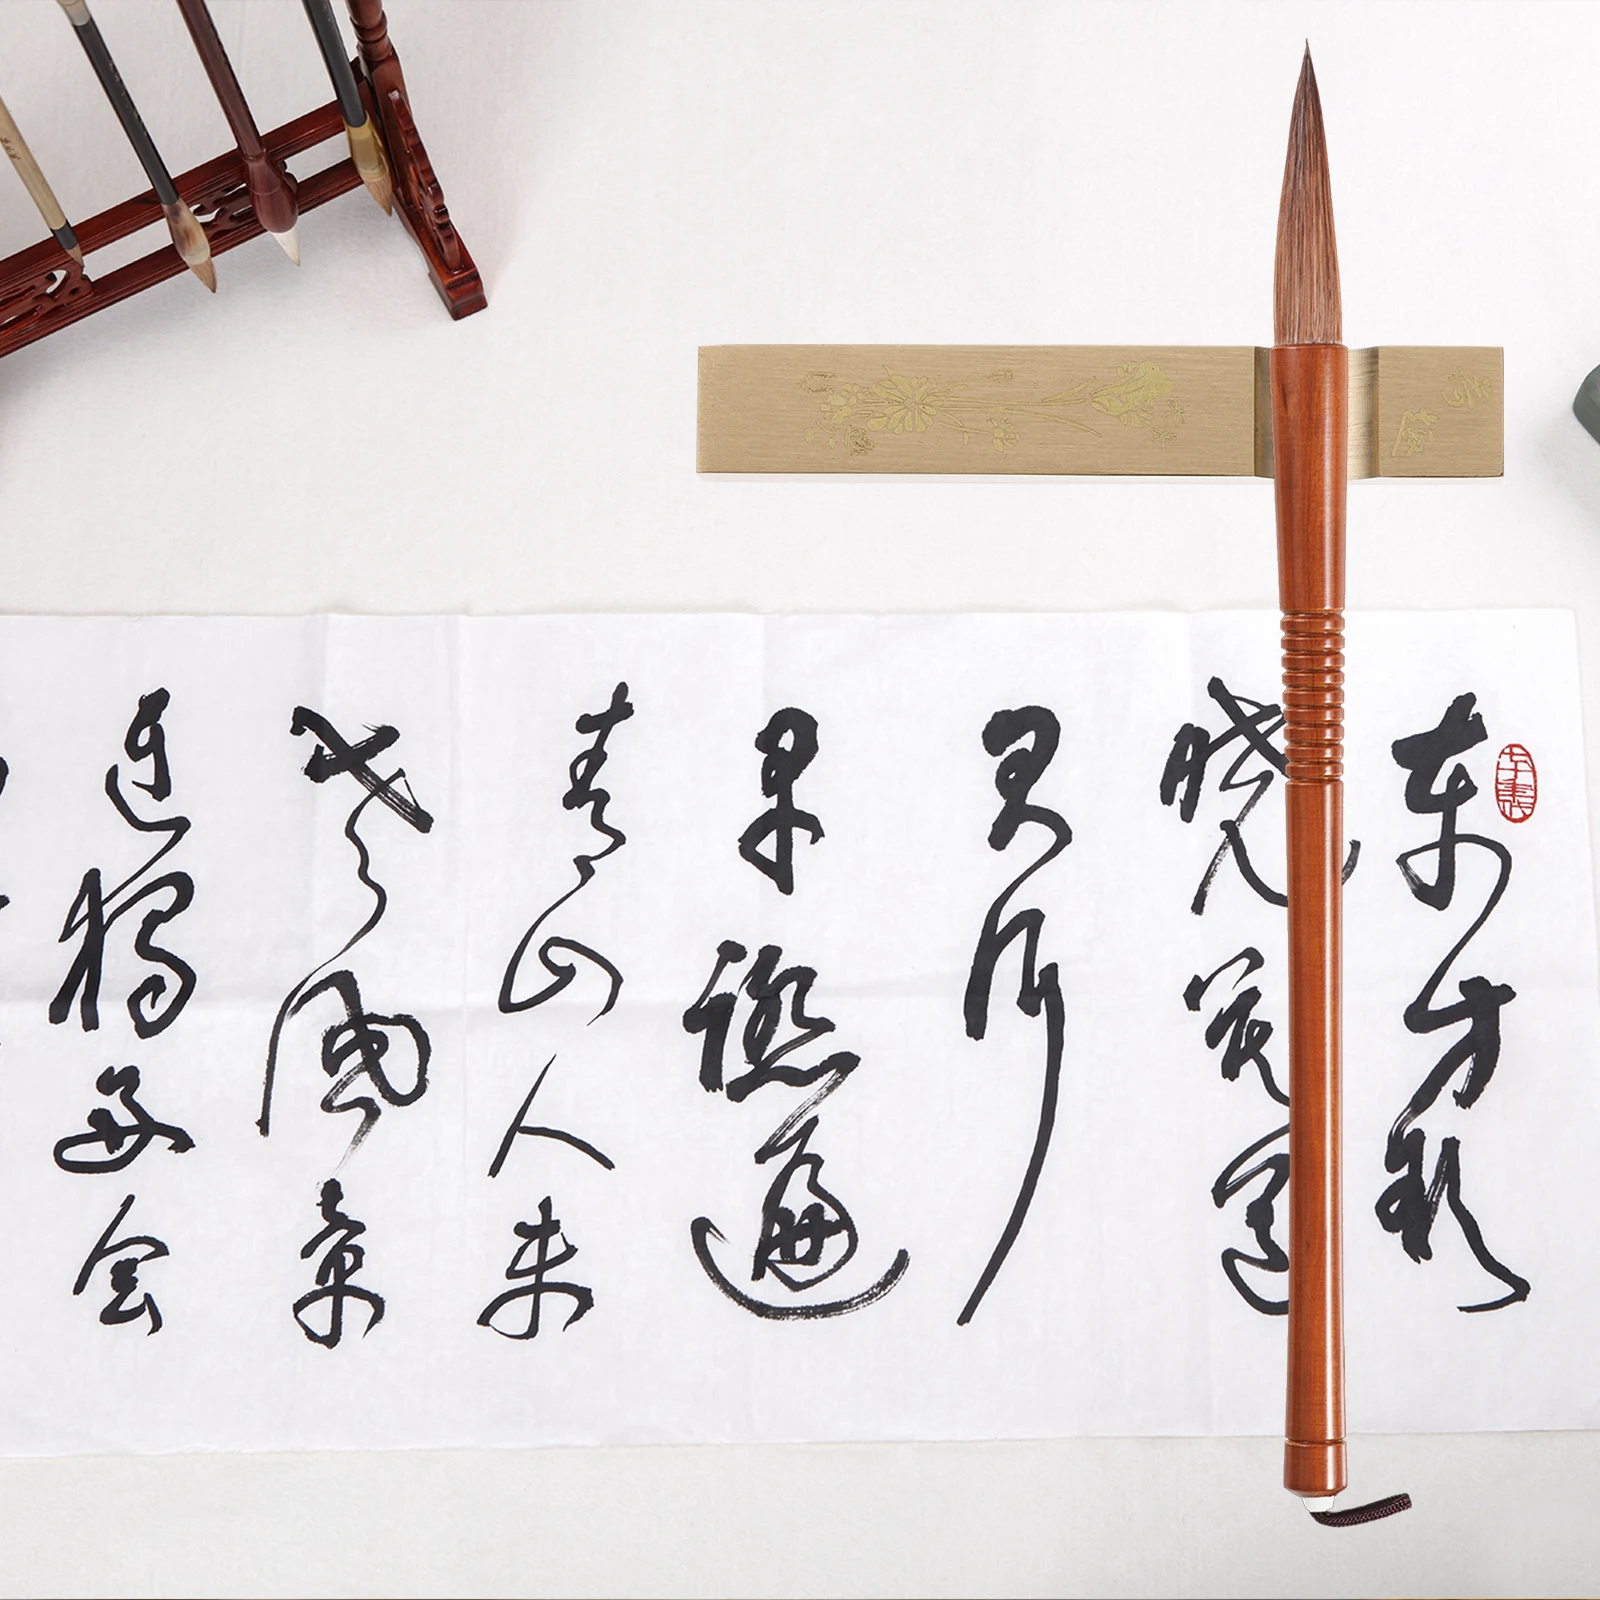 东方欲
晓莫道
君行
早踏遍
青山人未
老風景
獨好会